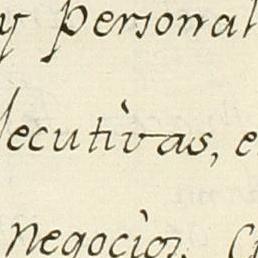 y personal
ecutivas, e
negocios,